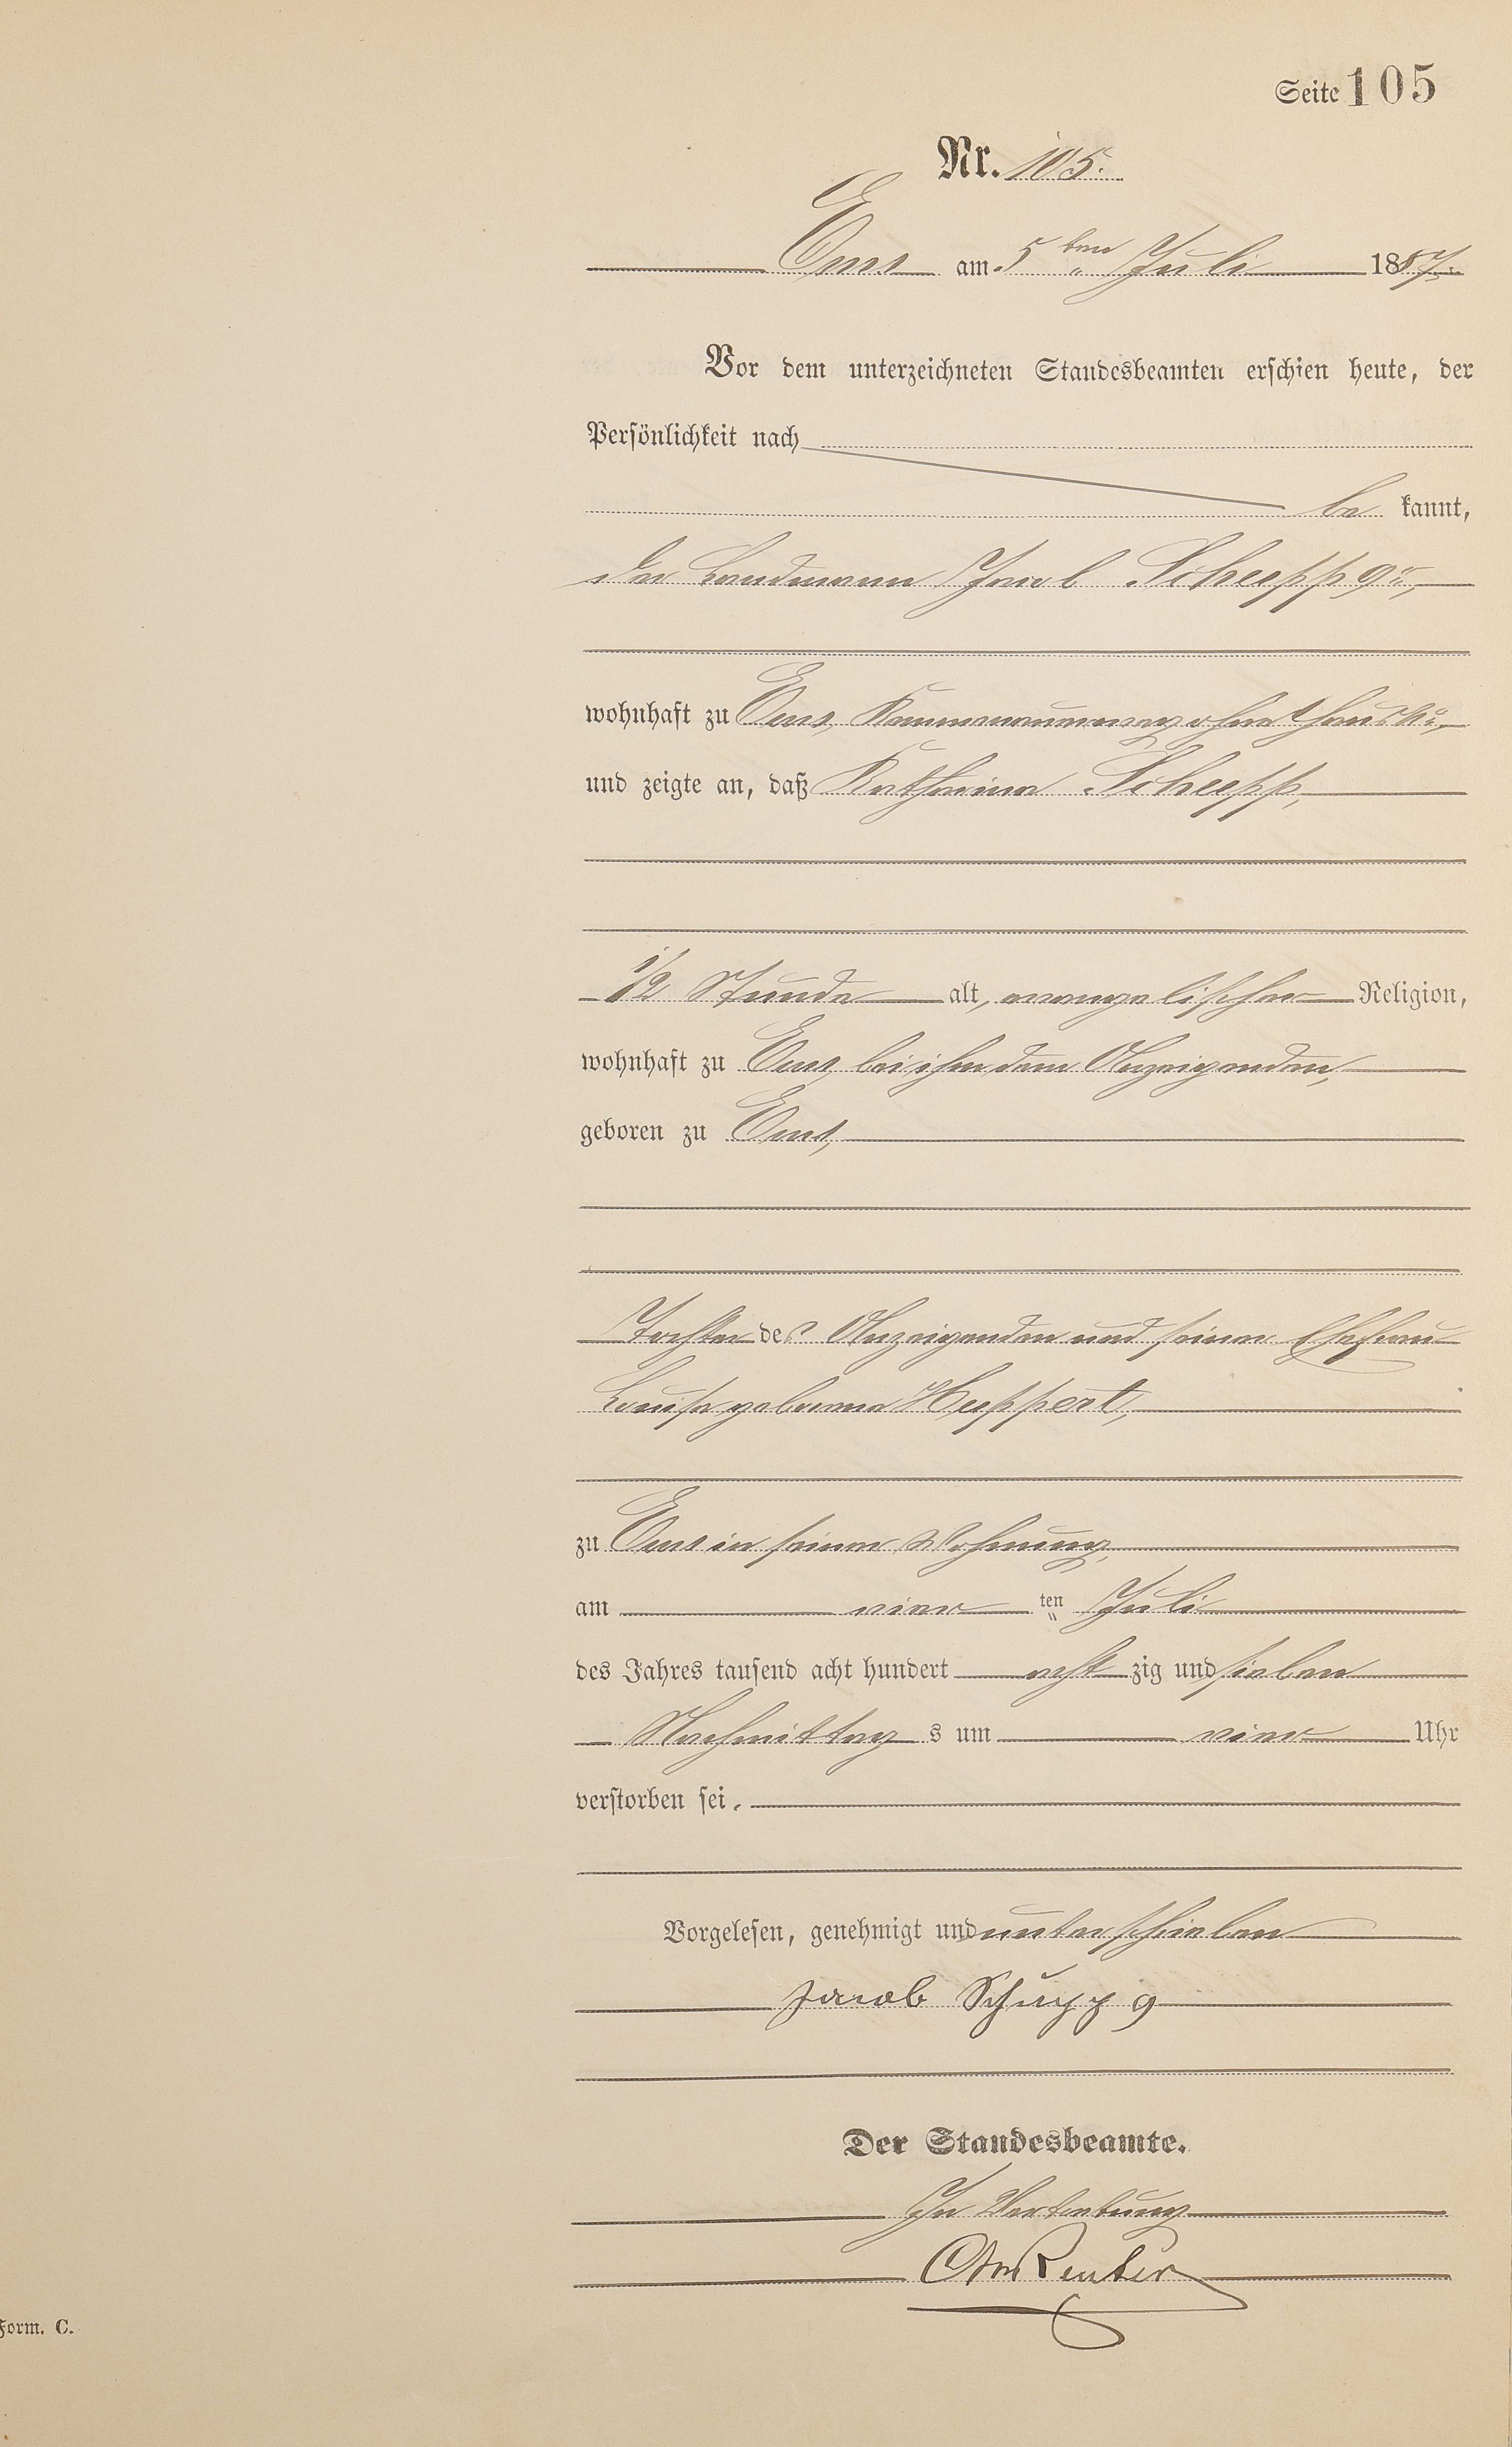 Seite 105
Nr. 105.
Ems am 5ten Juli 1887.
Vor dem unterzeichneten Standesbeamten erschien heute, der
Persönlichkeit nach
be kannt,
der Landmann Jacob Schupp 9r,
wohnhaft zu Ems,
und zeigte an, daß Katharina Schupp,
1/2 Stunde alt, evangelischer Religion,
wohnhaft zu Ems, bei ihm dem Anzeigenden,
geboren zu Ems,
Tochter des Anzeigenden und seiner Ehefrau
Louise geborene Huppert,
zu Ems in seiner Wohnung,
am vier ten Juli
des Jahres tausend acht hundert acht zig und sieben
Nachmittag s um vier Uhr
verstorben sei.
Vorgelesen, genehmigt und unterschrieben
Jacob Schupp 9
Der Standesbeamte.
In Vertretung
Reuter
Form. C.